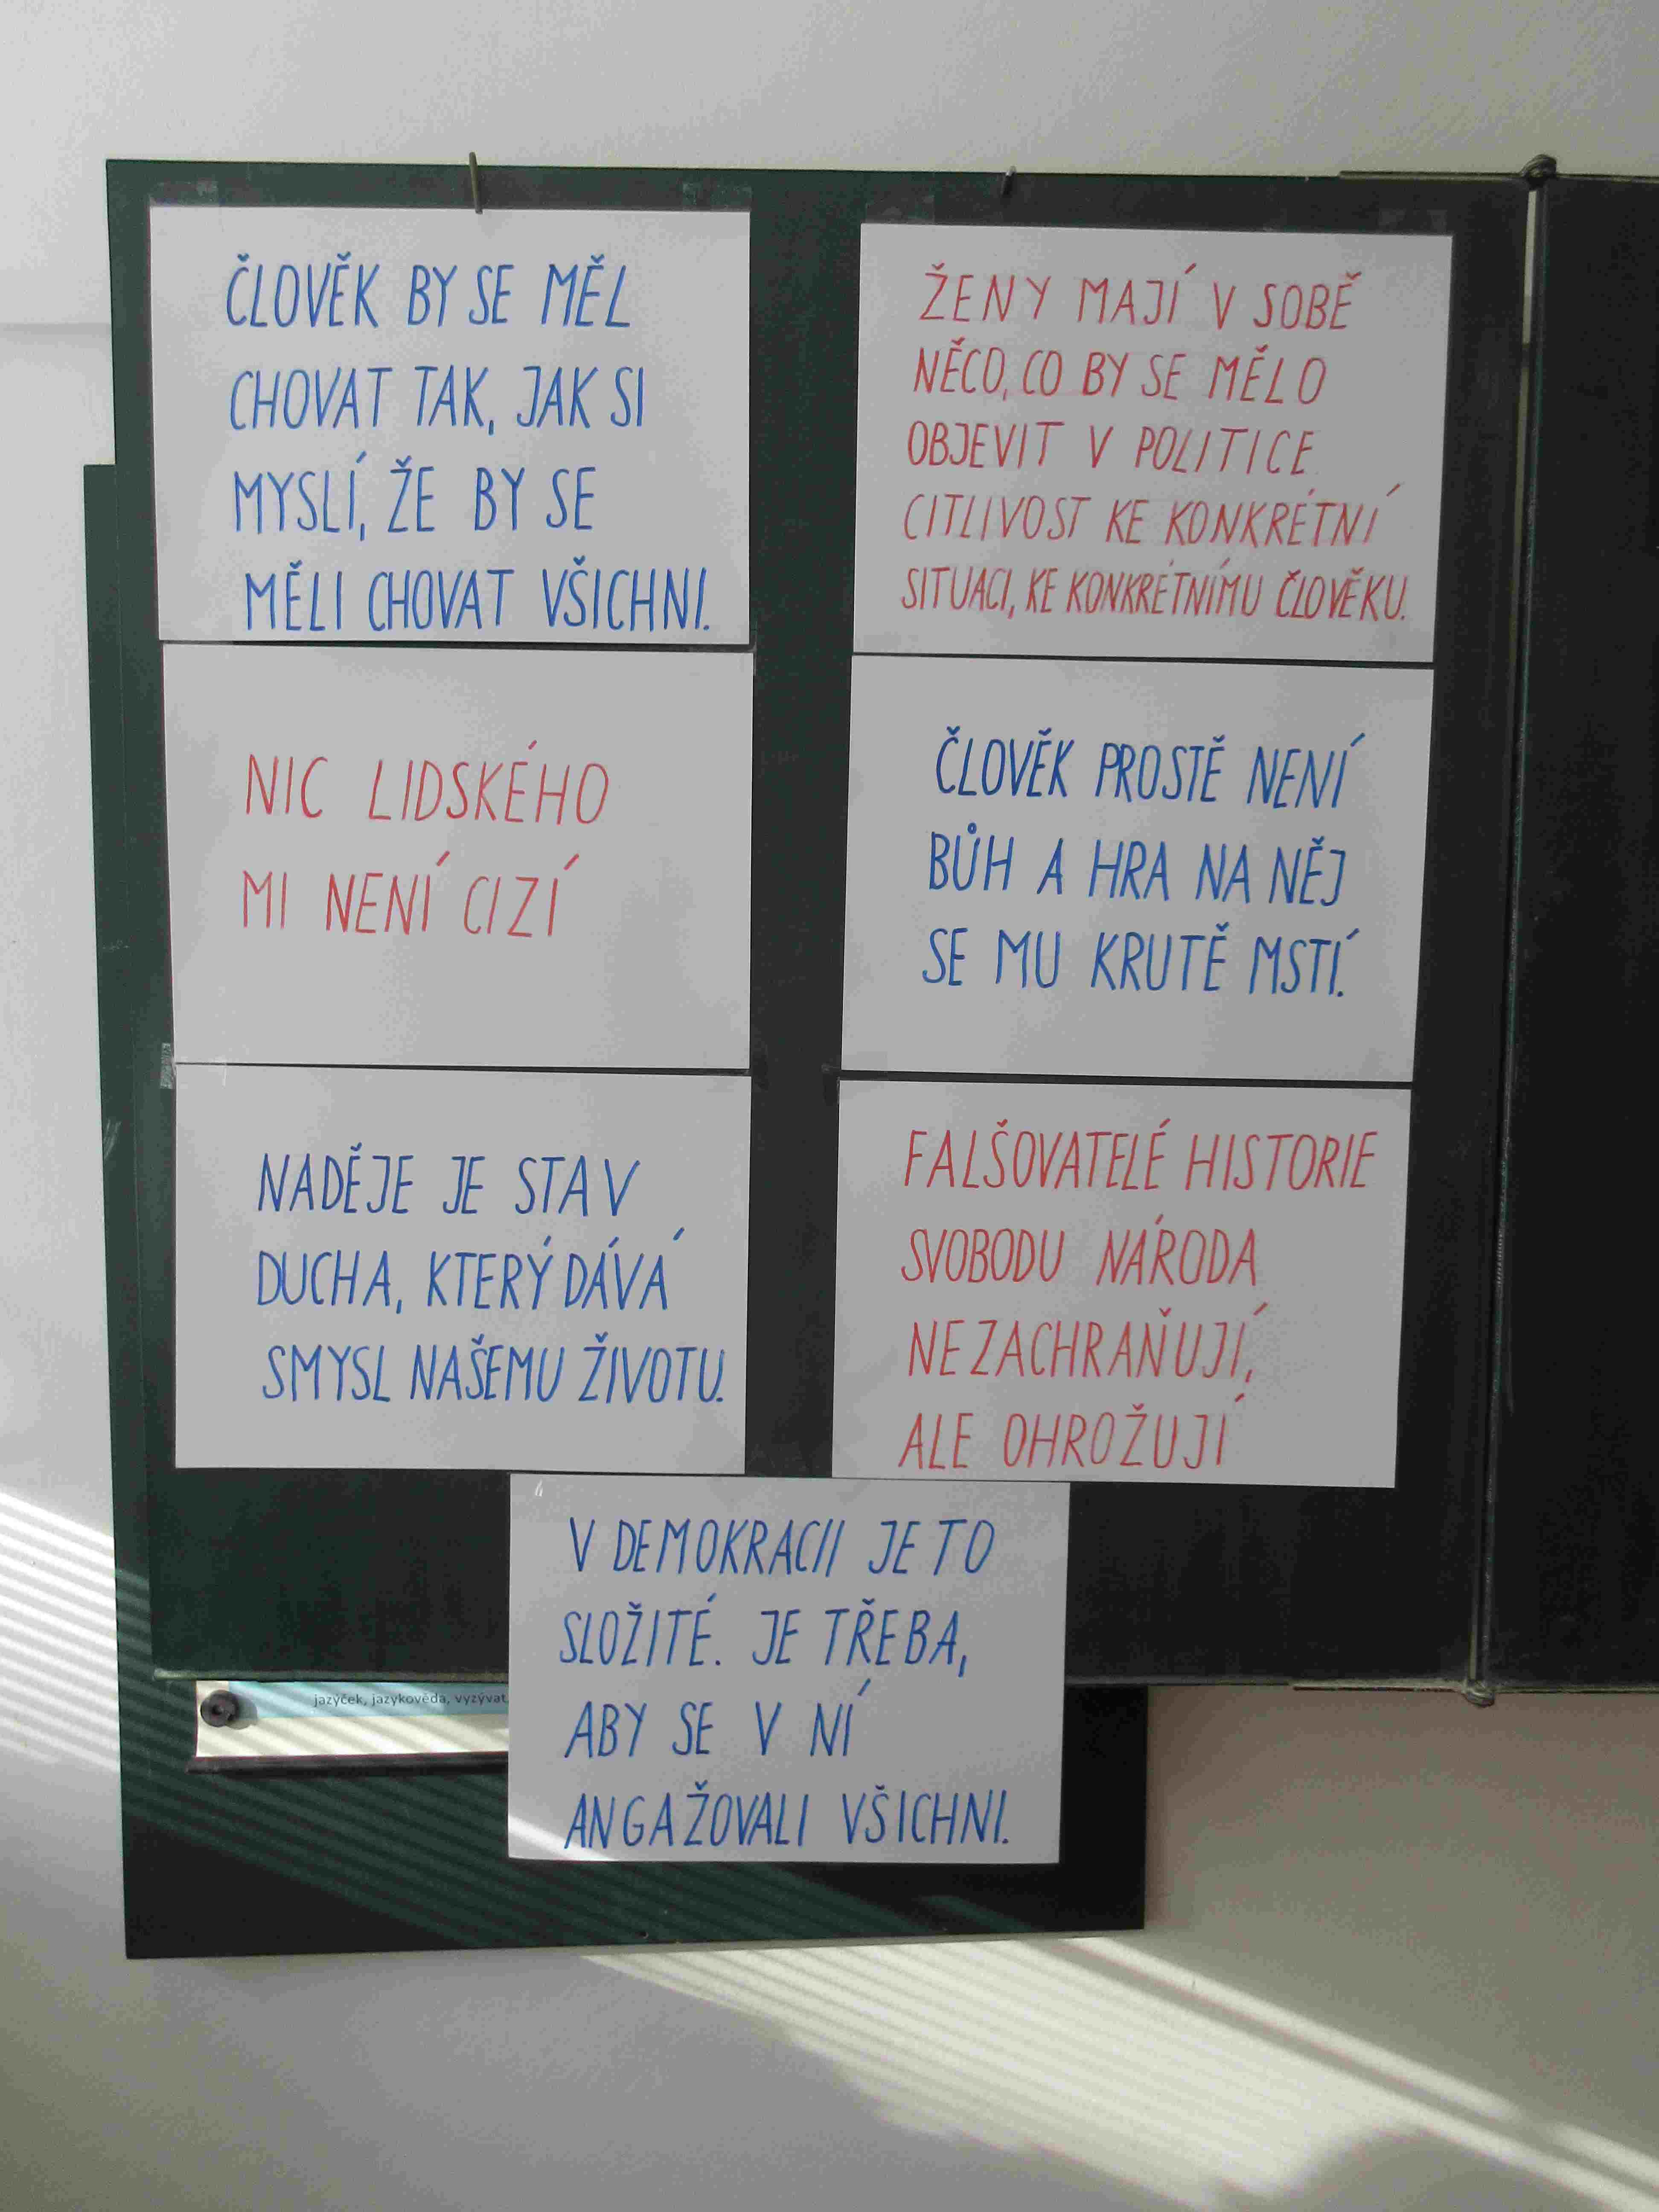 ČLOVĚK BY SE MĚL
CHOVAT TAK, JAK SI
MYSLÍ, ŽE BY SE
MĚLI CHOVAT VŠICHNI.
ŽENY MAJÍ V SOBĚ
NĚCO, CO BY SE MĚLO
OBJEVIT V POLITICE
CITLIVOST KE KONKRÉTNÍ
SITUACI, KE KONKRÉTNÍMU ČLOVĚKU.
NIC LIDSKÉHO
MI NENÍ CIZÍ
ČLOVĚK PROSTĚ NENÍ
BŮH A HRA NA NĚJ
SE MU KRUTĚ MSTÍ.
NADĚJE JE STAV
DUCHA, KTERÝ DÁVÁ
SMYSL NAŠEMU ŽIVOTU.
FALŠOVATELÉ HISTORIE
SVOBODU NÁRODA
NEZACHRAŇUJÍ,
ALE OHROŽUJÍ
V DEMOKRACII JE TO
SLOŽITÉ. JE TŘEBA,
ABY SE V NÍ
ANGAŽOVALI VŠICHNI.
jazýček, jazykověda, vyzývat